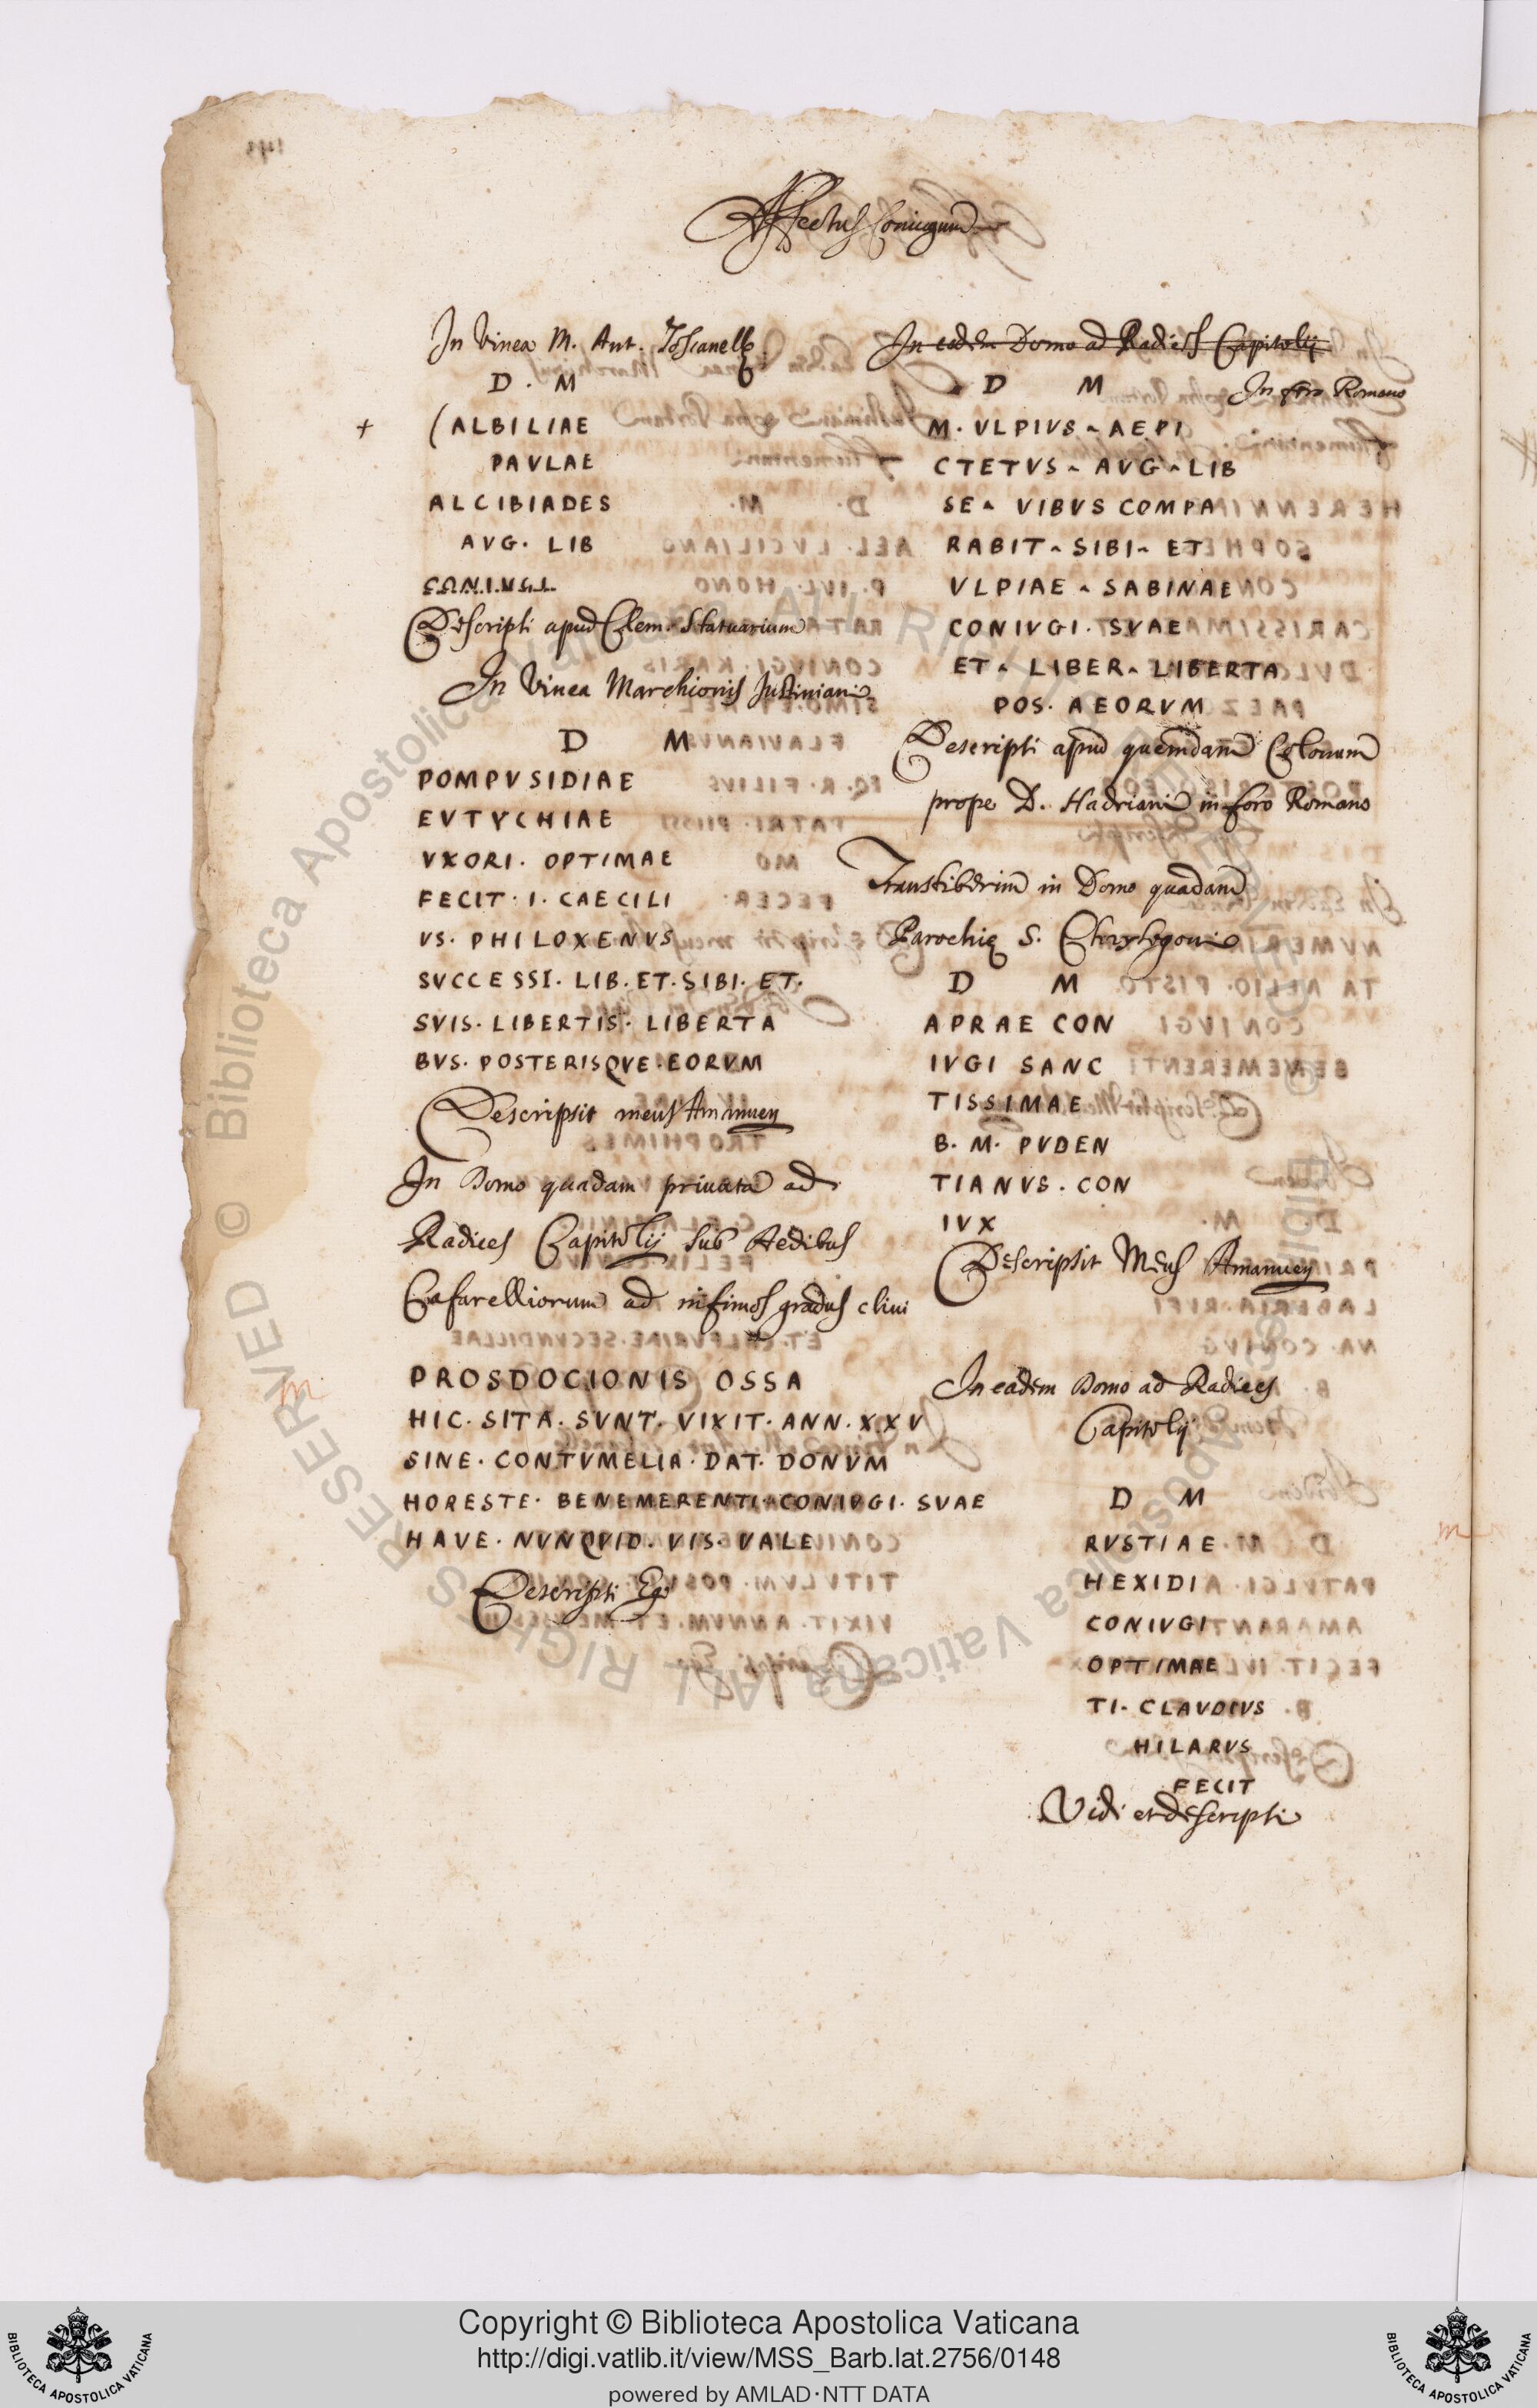 Affectus Coniugum
In Vinea M. Ant. Toscanellę
D . M
+ (ALBILIAE
PAVLAE
ALCIBIADES
AVG. LIB
CONIVGI
Descripsi apud Clem. Statuarium
In Vinea Marchionis Justiniani
D M
POMPVSIDIAE
EVTYCHIAE
VXORI. OPTIMAE
FECIT. I. CAECILI
VS. PHILOXENVS
SVCCESSI. LIB. ET. SIBI. ET.
SVIS. LIBERTIS. LIBERTA
BVS. POSTERISQVE. EORVM
Descripsit meus Amanuen
In Domo quadam priuata ad
Radices Capitolij sub Aedibus
Cafarelliorum ad infimos gradus cliui
PROSDOCIONIS OSSA
HIC. SITA. SVNT. VIXIT. ANN. XXV
SINE. CONTVMELIA. DAT. DONVM
HORESTE. BENEMERENTI. CONIVGI. SVAE
HAVE. NVNQVID. VIS. VALE
Descripsi Ego
In eadem Domo ad Radices Capitolij
D M In foro Romano
M. VLPIVS ^ AEPI
CTETVS ^ AVG ^ LIB
SE ^ VIBVS COMPA
RABIT ^ SIBI ^ ET
VLPIAE ^ SABINAE
CONIVGI. SVAE
ET ^ LIBER ^ LIBERTA
POS. AEORVM
Descripsi apud quemdam Colonum
prope D. Hadriani in foro Romano
Transtiberim in Domo quadam
Parochię S. Chrysogoni
D M
APRAE CON
IVGI SANC
TISSIMAE
B. M. PVDEN
TIANVS. CON
IVX
Descripsit Meus Amanuen
In eadem Domo ad Radices
Capitolij
D M
RVSTIAE
HEXIDI
CONIVGI
OPTIMAE
TI. CLAVDIVS
HILARVS
FECIT
Vidi et descripsi
Copyright © Biblioteca Apostolica Vaticana
http://digi.vatlib.it/view/MSS_Barb.lat.2756/0148
powered by AMLAD·NTT DATA
BIBLIOTECA APOSTOLICA VATICANA
BIBLIOTECA APOSTOLICA VATICANA